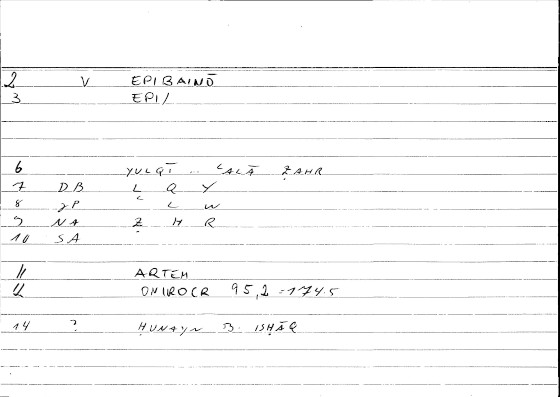 2 V EPIBAINŌ
3 EPI/
6 YULQĪ .. ʿALĀ ẒAHR
7 DB L Q Y
8 γP ʿ L W
9 NA Ẓ H R
10 SA
11 ARTEM
12 ONIROCR 95,2 = 174.5
14 ? ḤUNAYN B. ISḤĀQ